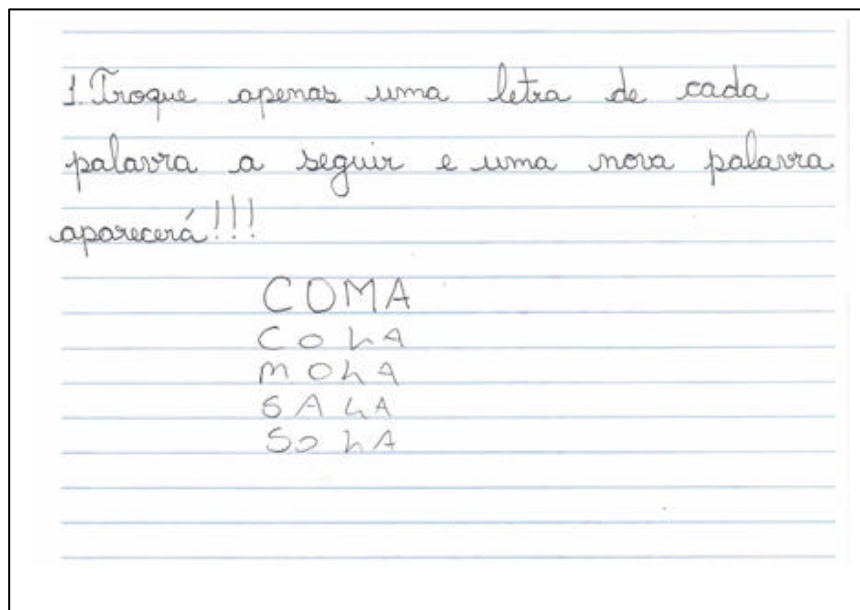 1. Troque apenas uma letra de cada
palavra a seguir e uma nova palavra
aparecerá!!!
COMA
COLA
MOLA
SALA
SOLA